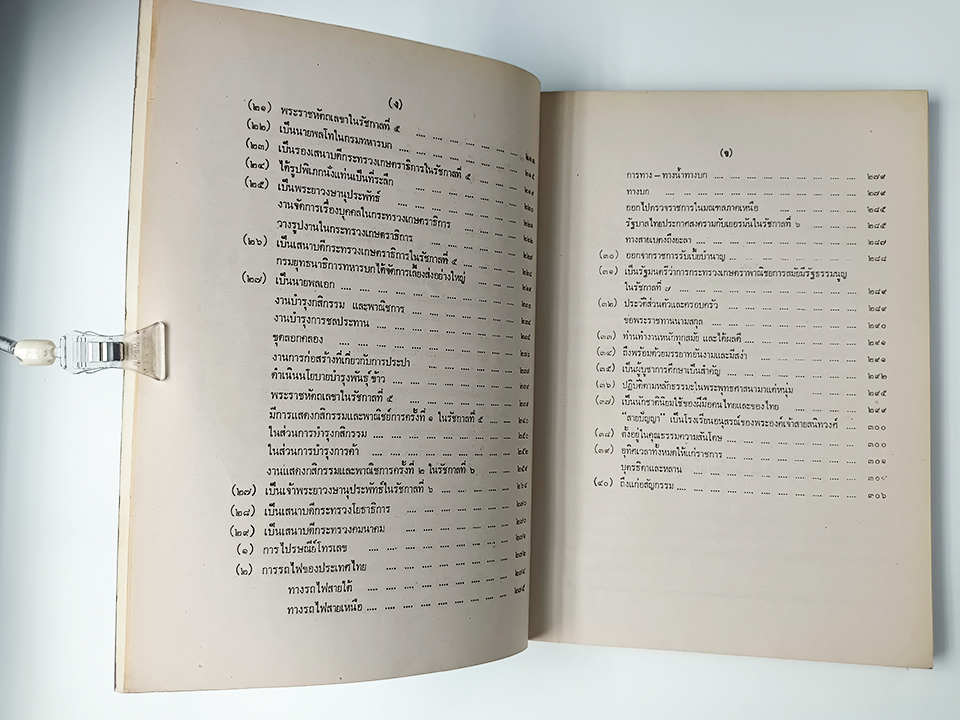 (ง)
(๒๑) พระราชหัตถเลขาในรัชกาลที่ ๕
(๒๒) เป็นนายพลโทในกรมทหารบก
(๒๓) เป็นรองเสนาบดีกระทรวงเกษตราธิการในรัชกาลที่ ๕
(๒๔) ได้รูปพิเภกนั่งแท่นเป็นที่ระลึก
(๒๕) เป็นพระยาวงษานุประพัทธ์
งานจัดการเรื่องบุคคลในกระทรวงเกษตราธิการ
วางรูปงานในกระทรวงเกษตราธิการ
(๒๖) เป็นเสนาบดีกระทรวงเกษตราธิการในรัชกาลที่ ๕
กรมยุทธนาธิการทหารบกได้จัดการเลี้ยงส่งอย่างใหญ่
(๒๗) เป็นนายพลเอก
งานบำรุงกสิกรรม และพาณิชการ
งานบำรุงการชลประทาน
ขุดลอกคลอง
งานการก่อสร้างที่เกี่ยวกับการประปา
ดำเนินนโยบายบำรุงพันธุ์ข้าว
พระราชหัตถเลขาในรัชกาลที่ ๕
มีการแสดงกสิกรรมและพาณิชย์การครั้งที่ ๑ ในรัชกาลที่ ๕
ในส่วนการบำรุงกสิกรรม
ในส่วนการบำรุงการค้า
งานแสดงกสิกรรมและพาณิชการครั้งที่ ๒ ในรัชกาลที่ ๖
(๒๗) เป็นเจ้าพระยาวงษานุประพัทธ์ในรัชกาลที่ ๖
(๒๘) เป็นเสนาบดีกระทรวงโยธาธิการ
(๒๙) เป็นเสนาบดีกระทรวงคมนาคม
(๑) การไปรษณีย์โทรเลข
(๒) การรถไฟของประเทศไทย
ทางรถไฟสายใต้ ๒๗๔
ทางรถไฟสายเหนือ ๒๗๕
การทาง – ทางน้ำทางบก ๒๗๙
ทางบก ๒๗๙
ออกไปตรวจราชการในมณฑลภาคเหนือ ๒๘๕
รัฐบาลไทยประกาศสงครามกับเยอรมันในรัชกาลที่ ๖ ๒๘๕
ทางสายเบตงถึงยะลา ๒๘๗
(๓๐) ออกจากราชการรับเบี้ยบำนาญ ๒๘๘
(๓๑) เป็นรัฐมนตรีว่าการกระทรวงเกษตราพาณิชยการสมัยมีรัฐธรรมนูญ
ในรัชกาลที่ ๗ ๒๘๙
(๓๒) ประวัติส่วนตัวและครอบครัว ๒๘๙
ขอพระราชทานนามสกุล ๒๙๐
(๓๓) ท่านทำงานหนักทุกสมัย และได้ผลดี ๒๙๑
(๓๔) ถึงพร้อมด้วยมรรยาทอันงามและมีสง่า ๒๙๑
(๓๕) เป็นผู้บูชาการศึกษาเป็นสำคัญ ๒๙๒
(๓๖) ปฏิบัติตามหลักธรรมะในพระพุทธศาสนามาแต่หนุ่ม ๒๙๕
(๓๗) เป็นนักชาตินิยมใช้ของฝีมือคนไทยและของไทย ๒๙๙
"สายปัญญา" เป็นโรงเรียนอนุสรณ์ของพระองค์เจ้าสายสนิทวงศ์ ๓๐๐
(๓๘) ตั้งอยู่ในคุณธรรมความสันโดษ ๓๐๐
(๓๙) อุทิศเวลาทั้งหมดให้แก่ราชการ ๓๐๑
บุตรธิดาและหลาน
(๔๐) ถึงแก่อสัญกรรม ๓๐๖